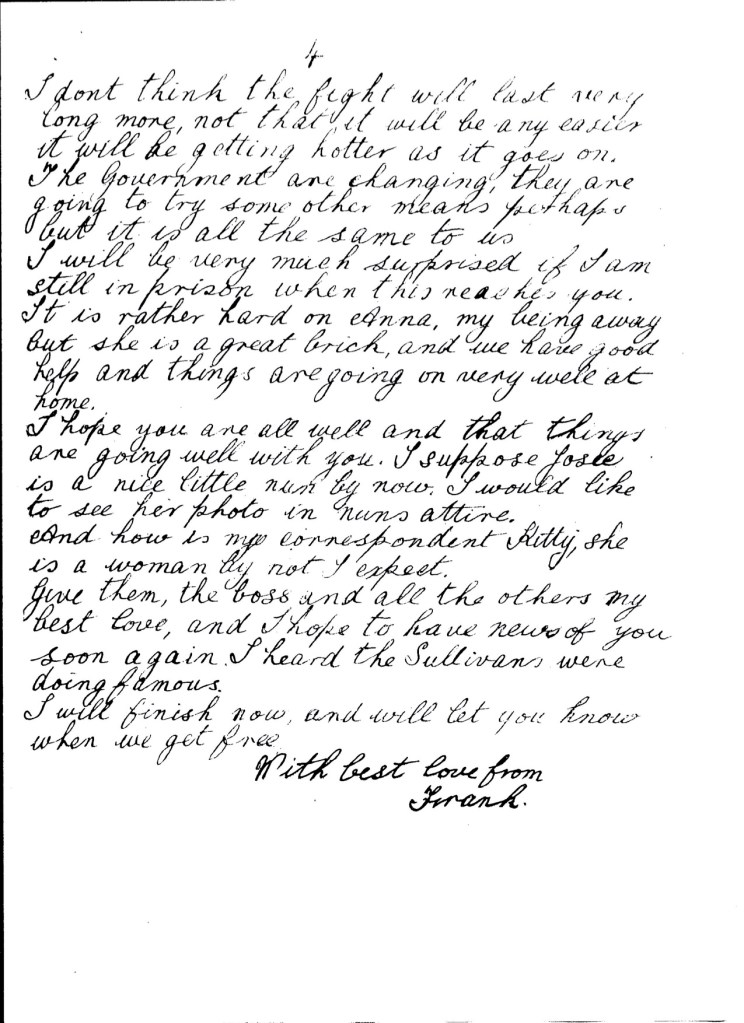 4
I dont think the fight will last very
long more, not that it will be any easier
it will be getting hotter as it goes on.
The Government are changing, they are
going to try some other means perhaps
but it is all the same to us
I will be very much surprised if I am
still in prison when this reaches you.
It is rather hard on Anna, my being away
but she is a great brick, and we have good
help and things are going on very well at
home.
I hope you are all well and that things
are going well with you. I suppose Josie
is a nice little nun by now. I would like
to see her photo in nuns attire.
And how is my correspondent Kitty, she
is a woman by not I expect.
Give them, the boss and all the others my
best love, and I hope to have news of you
soon again. I heard the Sullivans were
doing famous.
I will finish now, and will let you know
when we get free
With best love from
Frank.